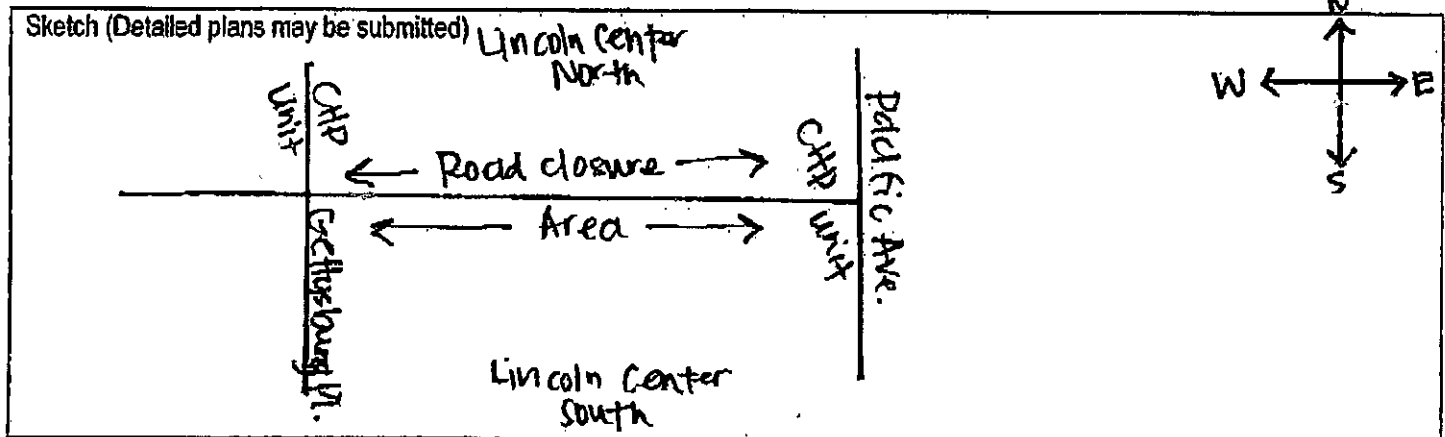 Sketch (Detailed plans may be submitted)
Lincoln Center
North
N
W E
S
CHP
Unit
Road closure
Area
CHP
Unit
Pacific Ave.
Gettysburg Pl.
Lincoln Center
South